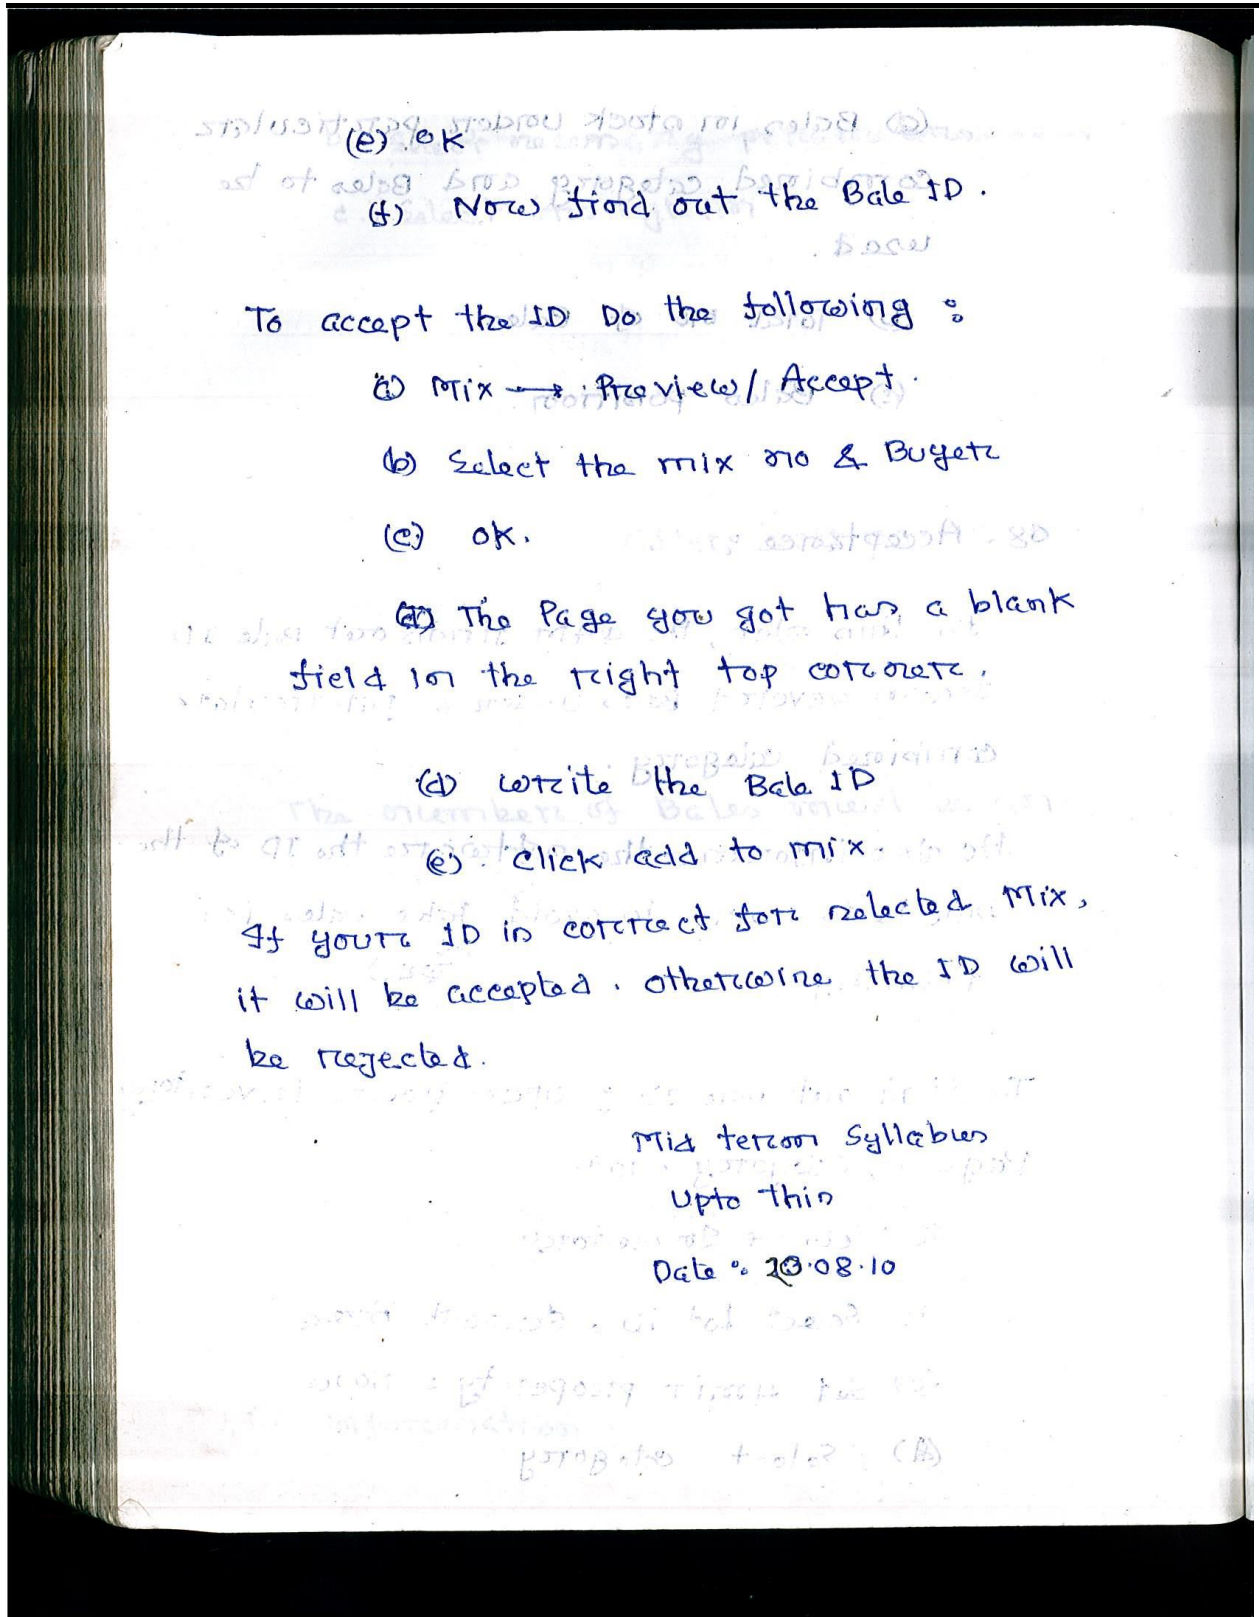 (e) OK
(f) Now find out the Bale ID.
To accept the ID Do the following :
(a) Mix → Preview/ Accept.
(b) Select the mix no & Buyer
(c) OK.
The Page you got has a blank
field in the right top corner.
(d) write the Bale ID
(e). Click add to mix.
If your ID is correct for selected Mix,
it will be accepted. otherwise the ID will
be rejected.
Mid term Syllabus
Upto this
Date : .08.10